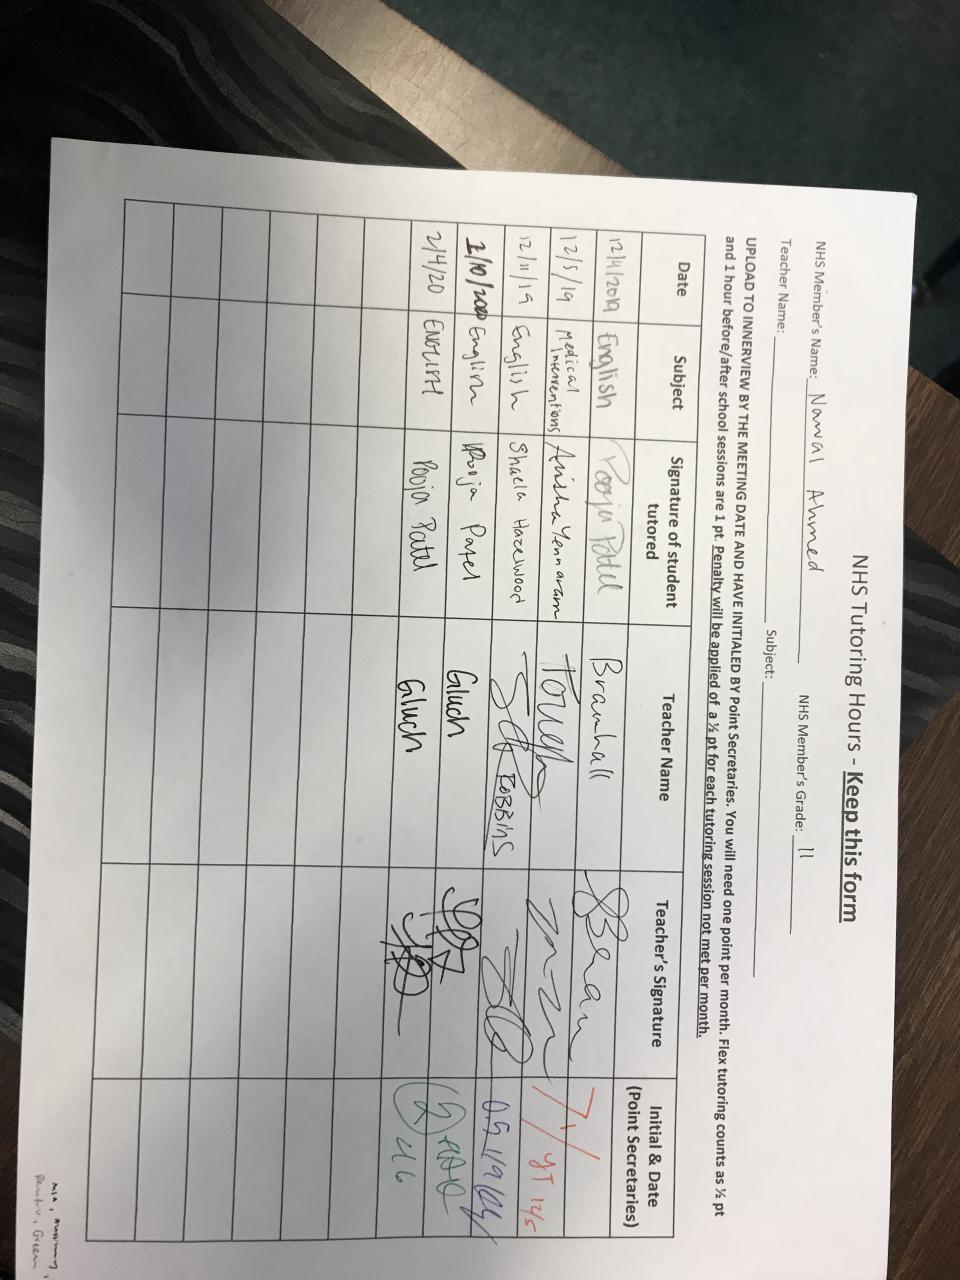 NHS Tutoring Hours - Keep this form
NHS Member's Name: Nawal Ahmed NHS Member's Grade: 11
Teacher Name: Subject:
UPLOAD TO INNERVIEW BY THE MEETING DATE AND HAVE INITIALED BY Point Secretaries. You will need one point per month. Flex tutoring counts as ½ pt
and 1 hour before/after school sessions are 1 pt. Penalty will be applied of a ½ pt for each tutoring session not met per month.
Date Subject Signature of student tutored Teacher Name Teacher's Signature Initial & Date (Point Secretaries)
12/4/2019 English Pooja Patel Bramhall
12/5/19 Medical Interventions Anisha Yenaram YT 12/5
12/11/19 English Shaela Hazelwood ROBBINS 0.5 1/9
1/10/2020 English Pooja Patel Gluch
2/4/20 ENGLISH Pooja Patel Gluch